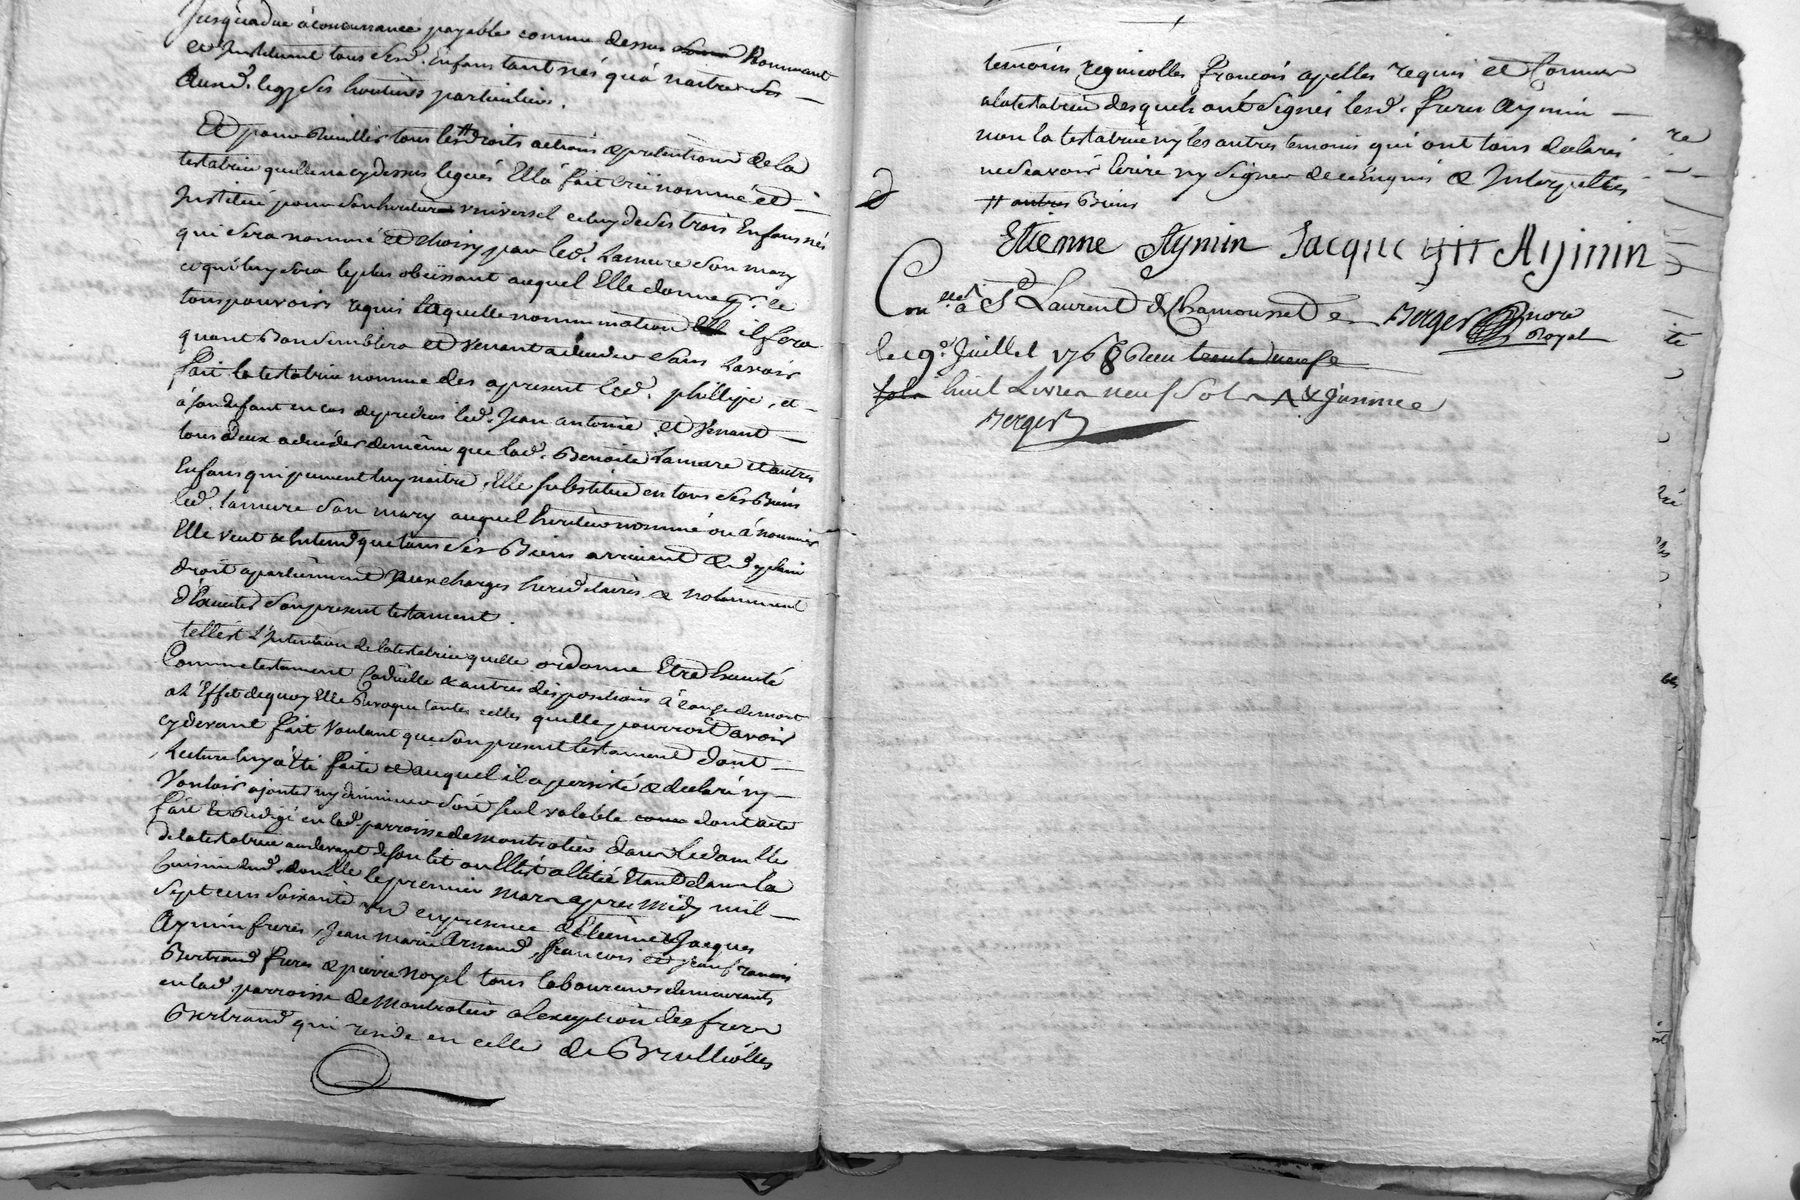 Jusqua due a concurrance payable comme dessus Nommant
et Instituant tous sesd. Enfans tant nés qu'a naitre ses
Auxd. legz ses heritiers particuliers.
Et pour Cueillir tous les droits actions & pretentions de la
testatrice quelle na cy dessus legués Ell'a fait Créé nommé et
Institué pour son heritier universel celuy de ses trois Enfans nés
qui sera nommé et choisy par led. Lamure son mary
et qui luy sera le plus obeissant auquel Elle donne pr. ce
tous pouvoirs requis laquelle nommination il fera
quant Bon semblera et Venant a deceder sans Lavoir
fait la testatrice nomme des apresent led. philipe, et
a son defaut en cas de predeces led. Jean antoine, et Venant
tous deux a deceder de meme que lad. Benoite Lamure et autres
Enfans qui peuvent luy naitre, Elle substitue en tous ses Biens
led. Lamure son mary auquel heritier nommé ou a nommer
Elle veut & Entend que tous ses Biens arrivent & de plain
droit apartiennent aux charges hereditaires & notamment
d'Executer son present testament.
tell est L'Intention de la testatrice quelle ordonne Etre Executé
Comme testament Codicille & autres dispositions a cause de mort
a L'Effet de quoy Elle Revoque toutes celles quelle pourroit avoir
cy devant fait Voulant que son present testament dont
Lecture luy a Eté faite et auquel il a persisté & declaré ny
Vouloir ajouter ny diminuer soit seul valable dont acte
fait & Redigé en lad. parroisse de Montrotier dans le domlle
de la testatrice au devant de son lit ou Ell'est alitée Etant dans la
Cuisine dud. domlle le premier mars apres midy mil
sept cens soixante un en presence d'Etienne & Jacques
Aymin freres, Jean Marie Arnaud, francois et jean francois
Bertrand freres & pierre Noyel tous laboureurs demeurants
en lad. parroisse de Montrotier a l'exception des freres
Bertrand qui reside en celle de Brullioles
temoins regnicolles francois apelles requis et Connus
a la testatrice desquels ont signés lesd. freres Aymin
non la testatrice ny les autres temoins qui ont tous declarés
ne scavoir Ecrire ny signer de ce Enquis & Interpellés
# autres Biens
Etienne Aymin Jacque Aymin
Conllé a St Laurent de Chamousset Berger nore
Royal
le 19e Juillet 1768 Reçu trente neuf
sols huit Livres neuf sols
Berger